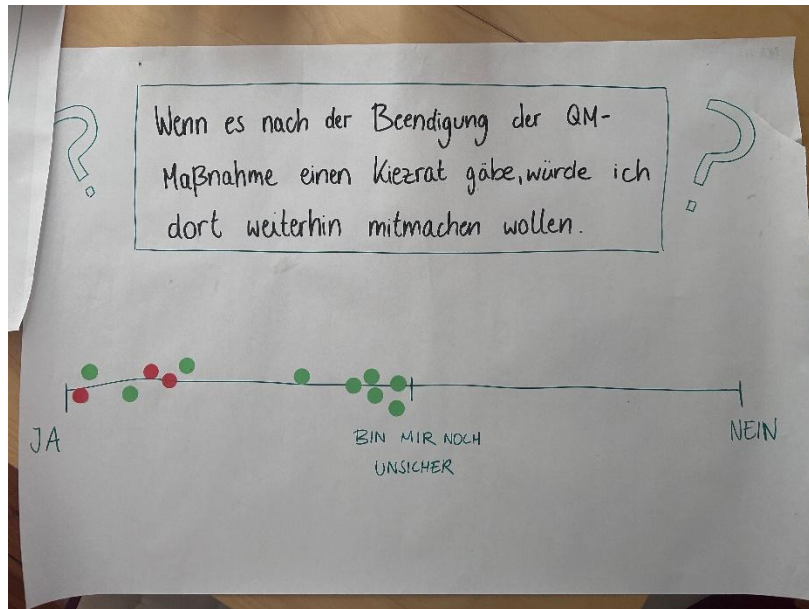 Wenn es nach der Beendigung der QM-
Maßnahme einen Kiezrat gäbe, würde ich
dort weiterhin mitmachen wollen.
JA
BIN MIR NOCH
UNSICHER
NEIN